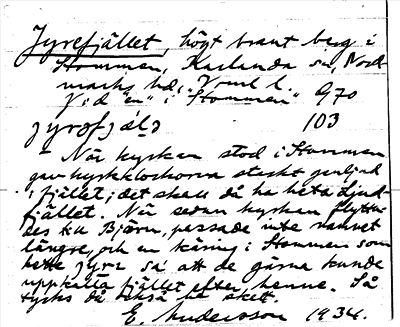 Jyrefjället, högt brant berg i
Stommen, Karlanda sn, Nord
marks hd, Vrml l.
Vid "en" i Stommen" 970
103
- När kyrkan stod i Stommen
gav kyrkklockorna starkt genljud
i fjället; det skall då ha hetat Ljud-
fjället. När sedan kyrkan flytta-
des till Björn, passade inte namnet
längre, och en käring i Stommen som
hette Jyre sa att de gärna kunde
uppkalla fjället efter henne. Så
tycks då också ha skett.
E. Andersson 1934.